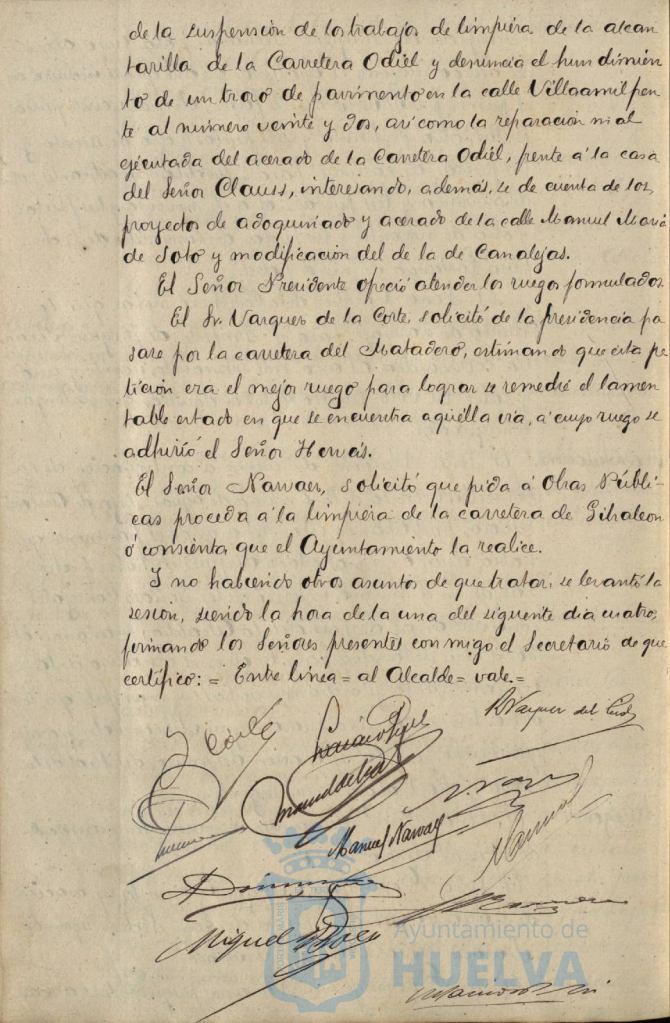 de la suspensión de los trabajos de limpiera de la alcan
tarilla de la Carretera Odiel y denuncia el hundimien
to de un trozo de pavimento en la calle Villaamil fren
te al número veinte y dos, así como la reparación mal
ejecutada del acerado de la Carretera Odiel, frente á la casa
del Señor Clauss, interesando, además, se de cuenta de los
proyectos de adoquinado y acerado de la calle Manuel María
de Soto y modificación del de la de Canalejas.
El Señor Presidente ofreció atender los ruegos formulados.
El Sr. Vazquez de la Corte, solicitó de la presidencia pa
sase por la carretera del Matadero, estimando que esta pe
tición era el mejor ruego para lograr se remedie el lamen
table estado en que se encuentra aquella vía, á cuyo ruego se
adhirió el Señor Hervás.
El Señor Narvaez, solicitó que pida á Obras Públi-
cas proceda á la limpiera de la carretera de Gibraleon
ó consienta que el Ayuntamiento la realice.
I no habiendo otros asuntos de que tratar, se levantó la
sesión, siendo la hora de la una del siguiente dia cuatro,
firmando los Señores presentes conmigo el Secretario de que
certifico: = Entre linea = al Alcalde = vale. =
Manuel Narvaez
Miguel
Ayuntamiento de
HUELVA